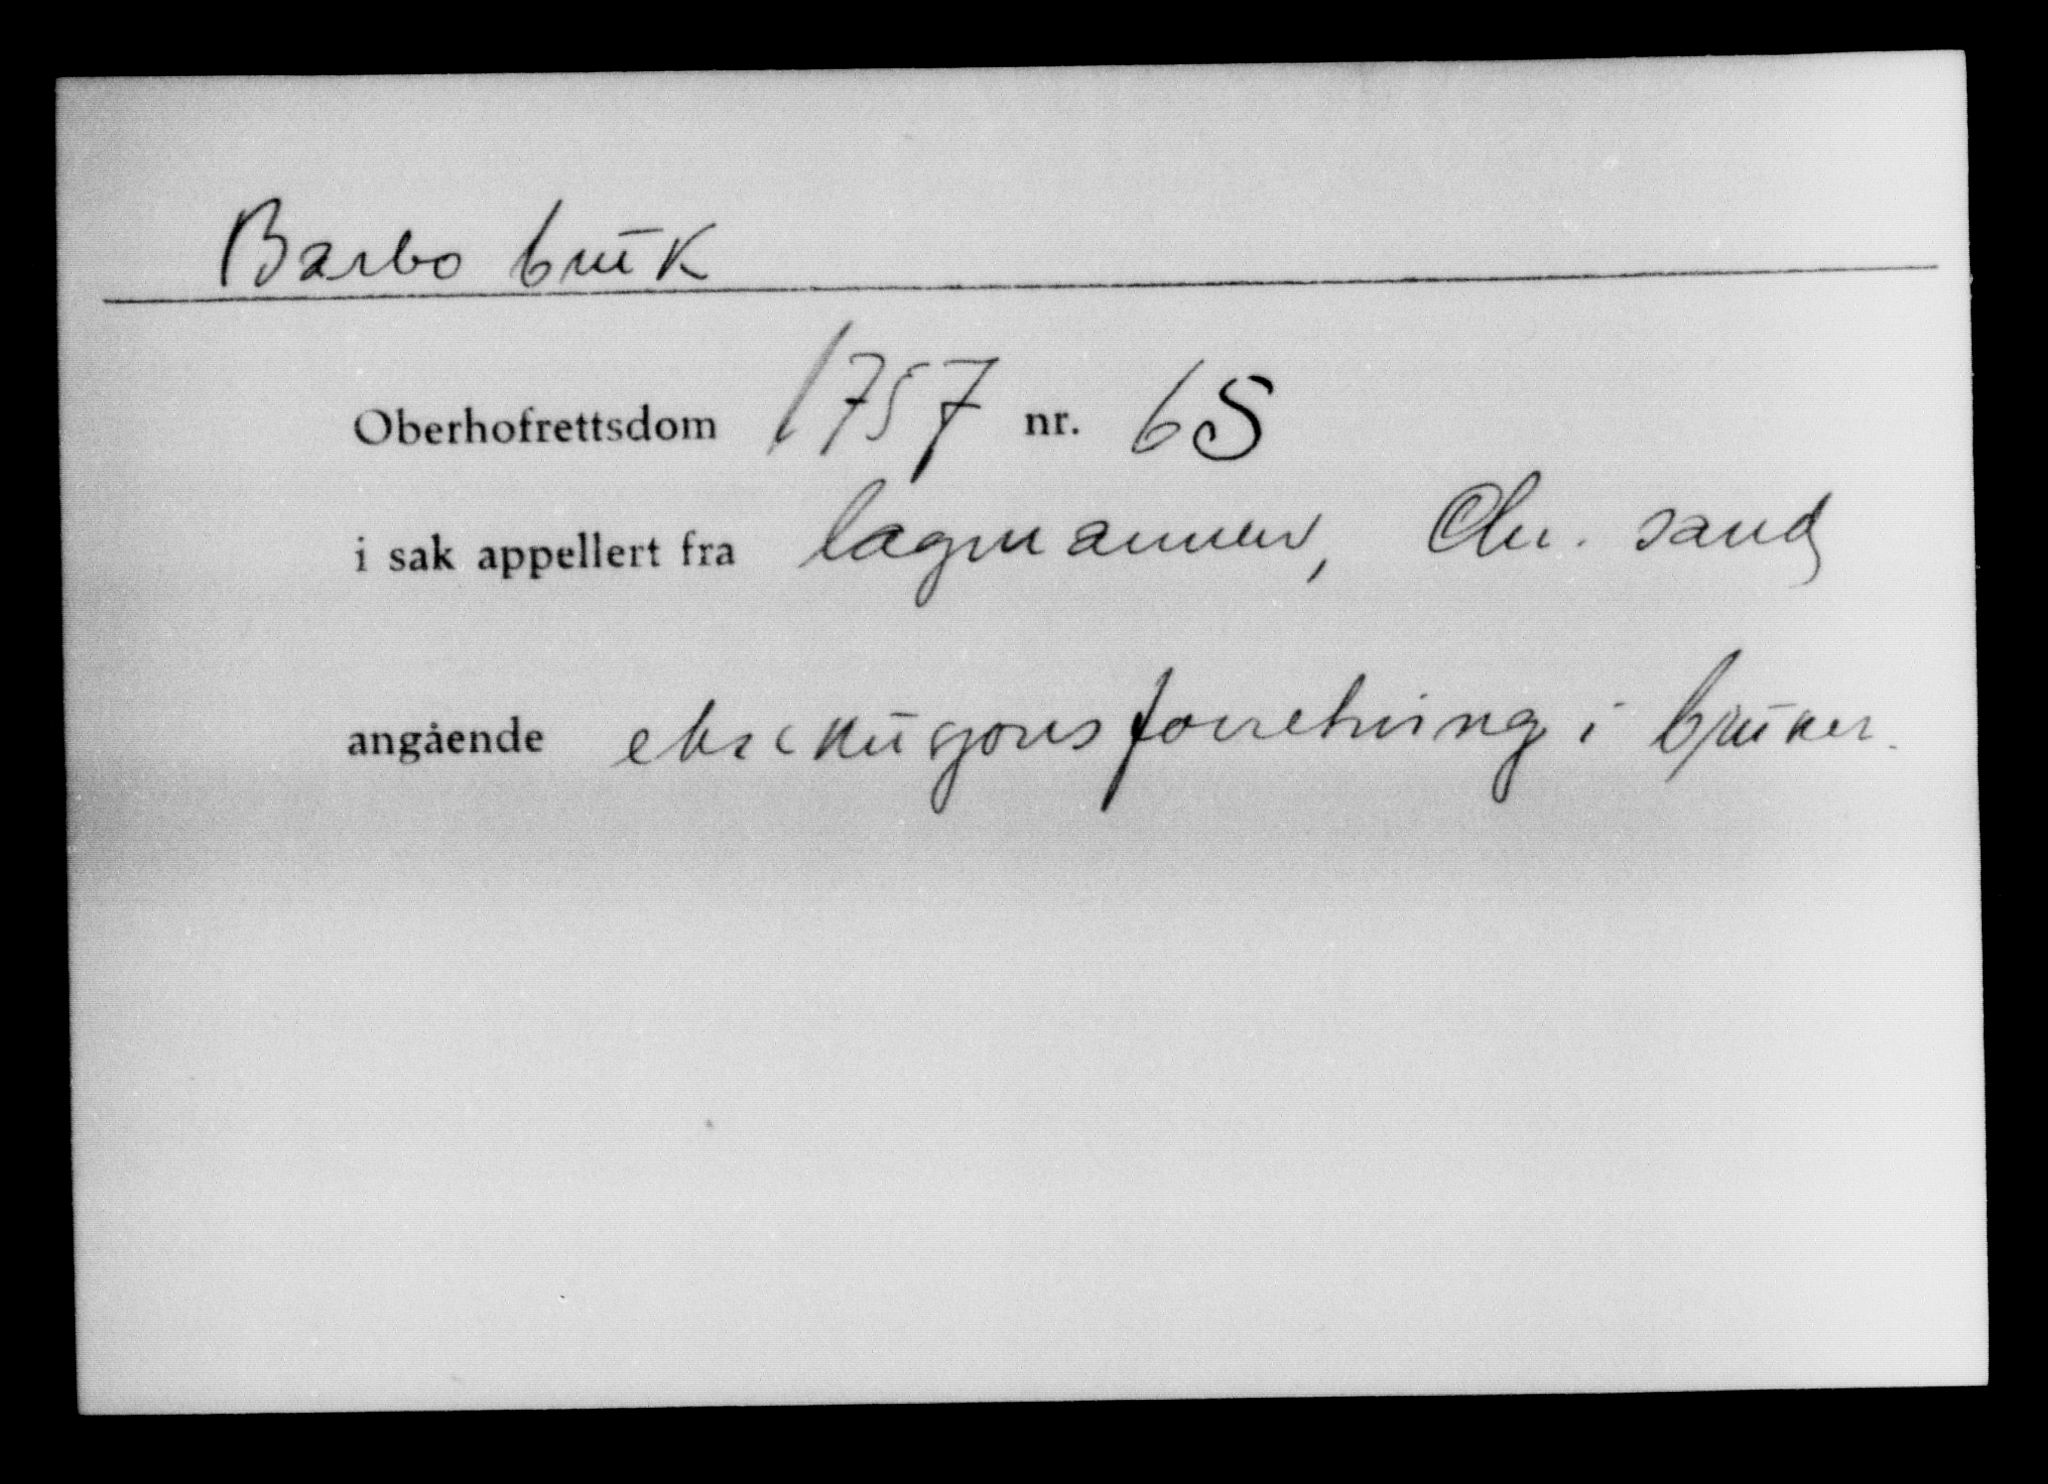 Barbo bruk
Oberhofrettsdom 1757 nr. 65
i sak appellert fra lagmannen, Chr. sand
angående eksekusjonsforretning i bruket.